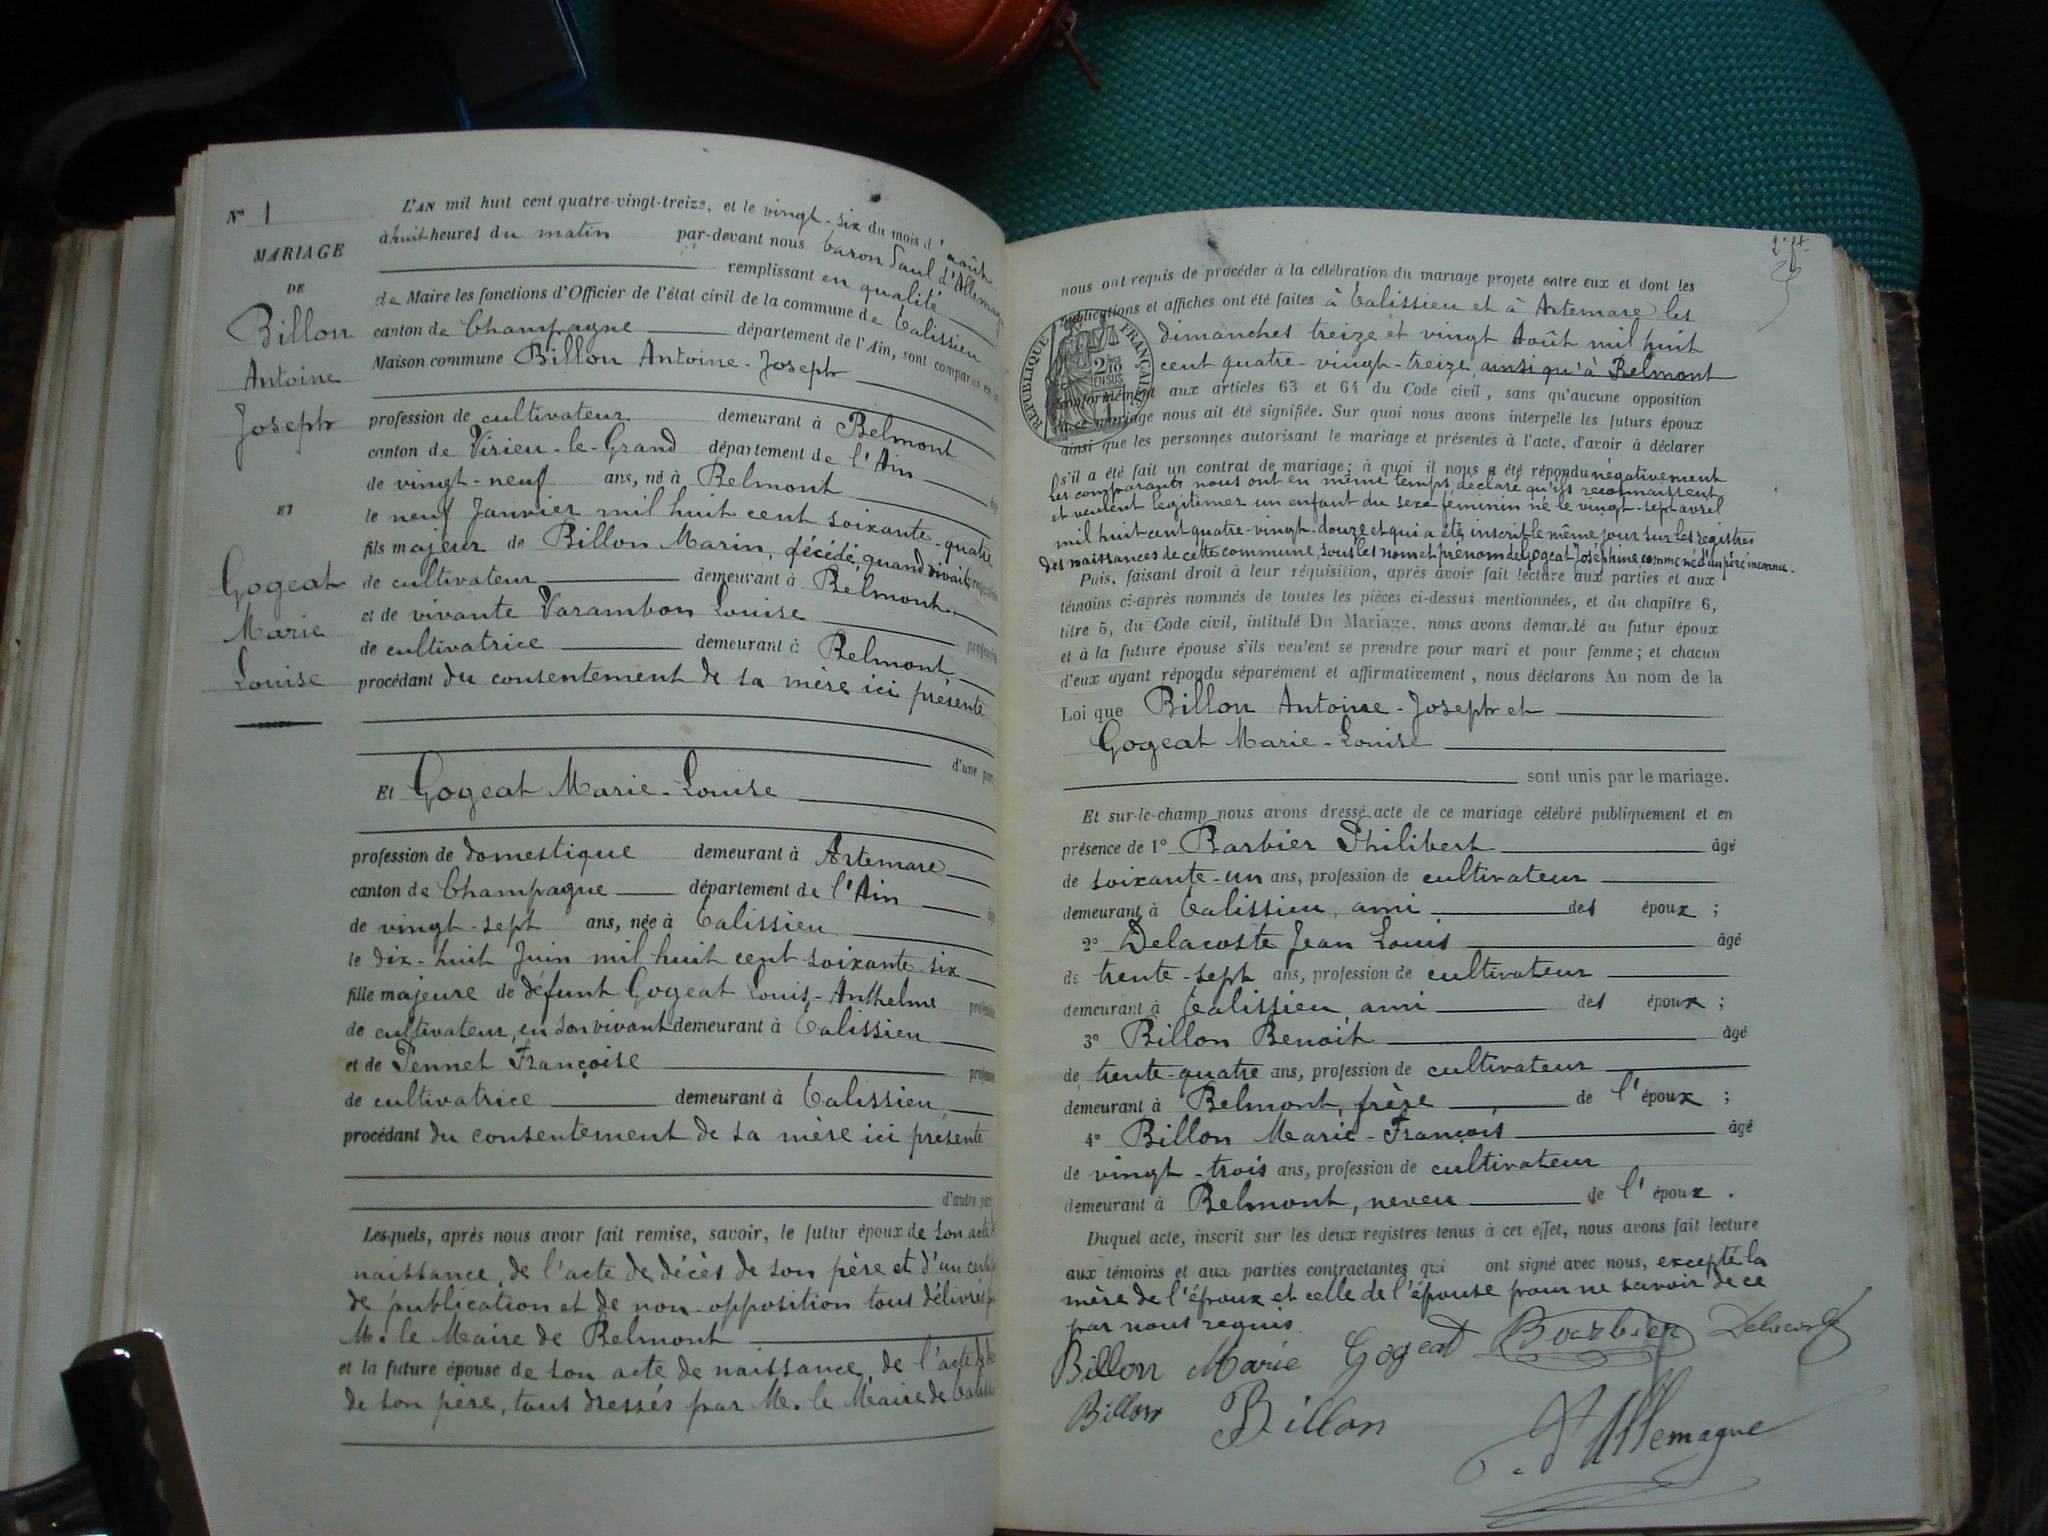 N° 1
MARIAGE
DE
Billon
Antoine
Joseph
ET
Gogeat
Marie
Louise
L'AN mil huit cent quatre-vingt-treize, et le vingt-six du mois d'août
à huit heures du matin par-devant nous baron Paul d'Allemagne
remplissant en qualité
de Maire les fonctions d'Officier de l'état civil de la commune de Talissieu
canton de Champagne département de l'Ain, sont comparus en la
Maison commune Billon Antoine-Joseph
profession de cultivateur demeurant à Belmont
canton de Virieu-le-Grand département de l'Ain
de vingt-neuf ans, né à Belmont
le neuf Janvier mil huit cent soixante-quatre
fils majeur de Billon Marin, décédé, quand vivait profession
de cultivateur demeurant à Belmont
et de vivante Varambon Louise profession
de cultivatrice demeurant à Belmont
procédant du consentement de sa mère ici présente
d'une part
Et Gogeat Marie-Louise
profession de domestique demeurant à Artemare
canton de Champagne département de l'Ain
de vingt-sept ans, née à Talissieu
le dix-huit Juin mil huit cent soixante-six
fille majeure de défunt Gogeat Louis-Anthelme profession
de cultivateur, en son vivant demeurant à Talissieu
et de Pennet Françoise profession
de cultivatrice demeurant à Talissieu
procédant du consentement de sa mère ici présente
d'autre part
Lesquels, après nous avoir fait remise, savoir, le futur époux de son acte de
naissance, de l'acte de décès de son père et d'un certif
de publication et de non-opposition tous délivrés
M. le Maire de Belmont
et la future épouse de son acte de naissance, de l'acte de
de son père, tous dressés par M. le Maire de Talissieu
nous ont requis de procéder à la célébration du mariage projeté entre eux et dont les
publications et affiches ont été faites à Talissieu et à Artemare les
dimanches treize et vingt Août mil huit
cent quatre-vingt-treize, ainsi qu'à Belmont
conformément aux articles 63 et 64 du Code civil, sans qu'aucune opposition
à ce mariage nous ait été signifiée. Sur quoi nous avons interpellé les futurs époux
ainsi que les personnes autorisant le mariage et présentes à l'acte, d'avoir à déclarer
s'il a été fait un contrat de mariage; à quoi il nous a été répondu négativement
Les comparants nous ont en même temps déclaré qu'ils reconnaissent
et veulent légitimer un enfant du sexe féminin né le vingt-sept avril
mil huit cent quatre-vingt-douze et qui a été inscrit le même jour sur les registres
des naissances de cette commune, sous les nom et prénom de Gogeat Joséphine comme né d'un père inconnu.
Puis, faisant droit à leur réquisition, après avoir fait lecture aux parties et aux
témoins ci-après nommés de toutes les pièces ci-dessus mentionnées, et du chapitre 6,
titre 5, du Code civil, intitulé Du Mariage, nous avons demandé au futur époux
et à la future épouse s'ils veulent se prendre pour mari et pour femme; et chacun
d'eux ayant répondu séparément et affirmativement, nous déclarons Au nom de la
Loi que Billon Antoine-Joseph et
Gogeat Marie-Louise
sont unis par le mariage.
Et sur-le-champ nous avons dressé acte de ce mariage célébré publiquement et en
présence de 1° Barbier Philibert âgé
de soixante-un ans, profession de cultivateur
demeurant à Talissieu, ami des époux ;
2° Delacoste Jean Louis âgé
de trente-sept ans, profession de cultivateur
demeurant à Talissieu ami des époux ;
3° Billon Benoît âgé
de trente-quatre ans, profession de cultivateur
demeurant à Belmont, frère de l'époux ;
4° Billon Marie-François âgé
de vingt-trois ans, profession de cultivateur
demeurant à Belmont, neveu de l'époux .
Duquel acte, inscrit sur les deux registres tenus à cet effet, nous avons fait lecture
aux témoins et aux parties contractantes qui ont signé avec nous, excepté la
mère de l'époux et celle de l'épouse pour ne savoir de ce
par nous requis.
Billon Marie Gogeat Barbier Delacoste
Billon Billon P. d'Allemagne
RÉPUBLIQUE FRANÇAISE